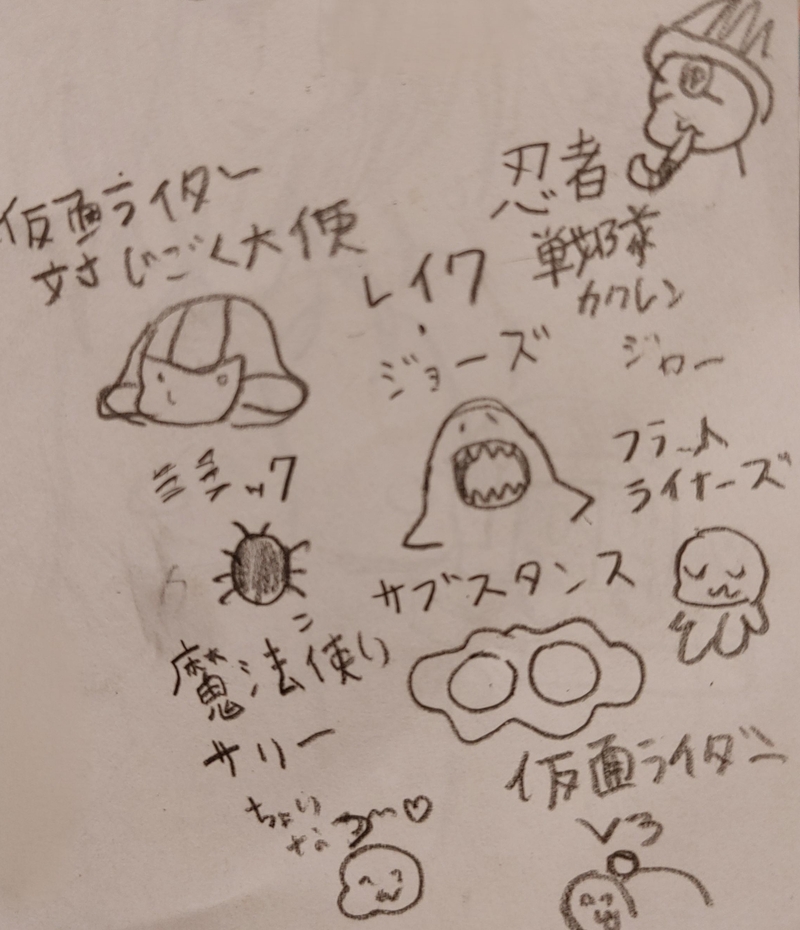 仮面ライダー
対じごく大使
忍者
戦隊
カクレン
ジャー
レイク
・
ジョーズ
ミミック
フラット
ライナーズ
サブスタンス
魔法使い
サリー
仮面ライダー
V3